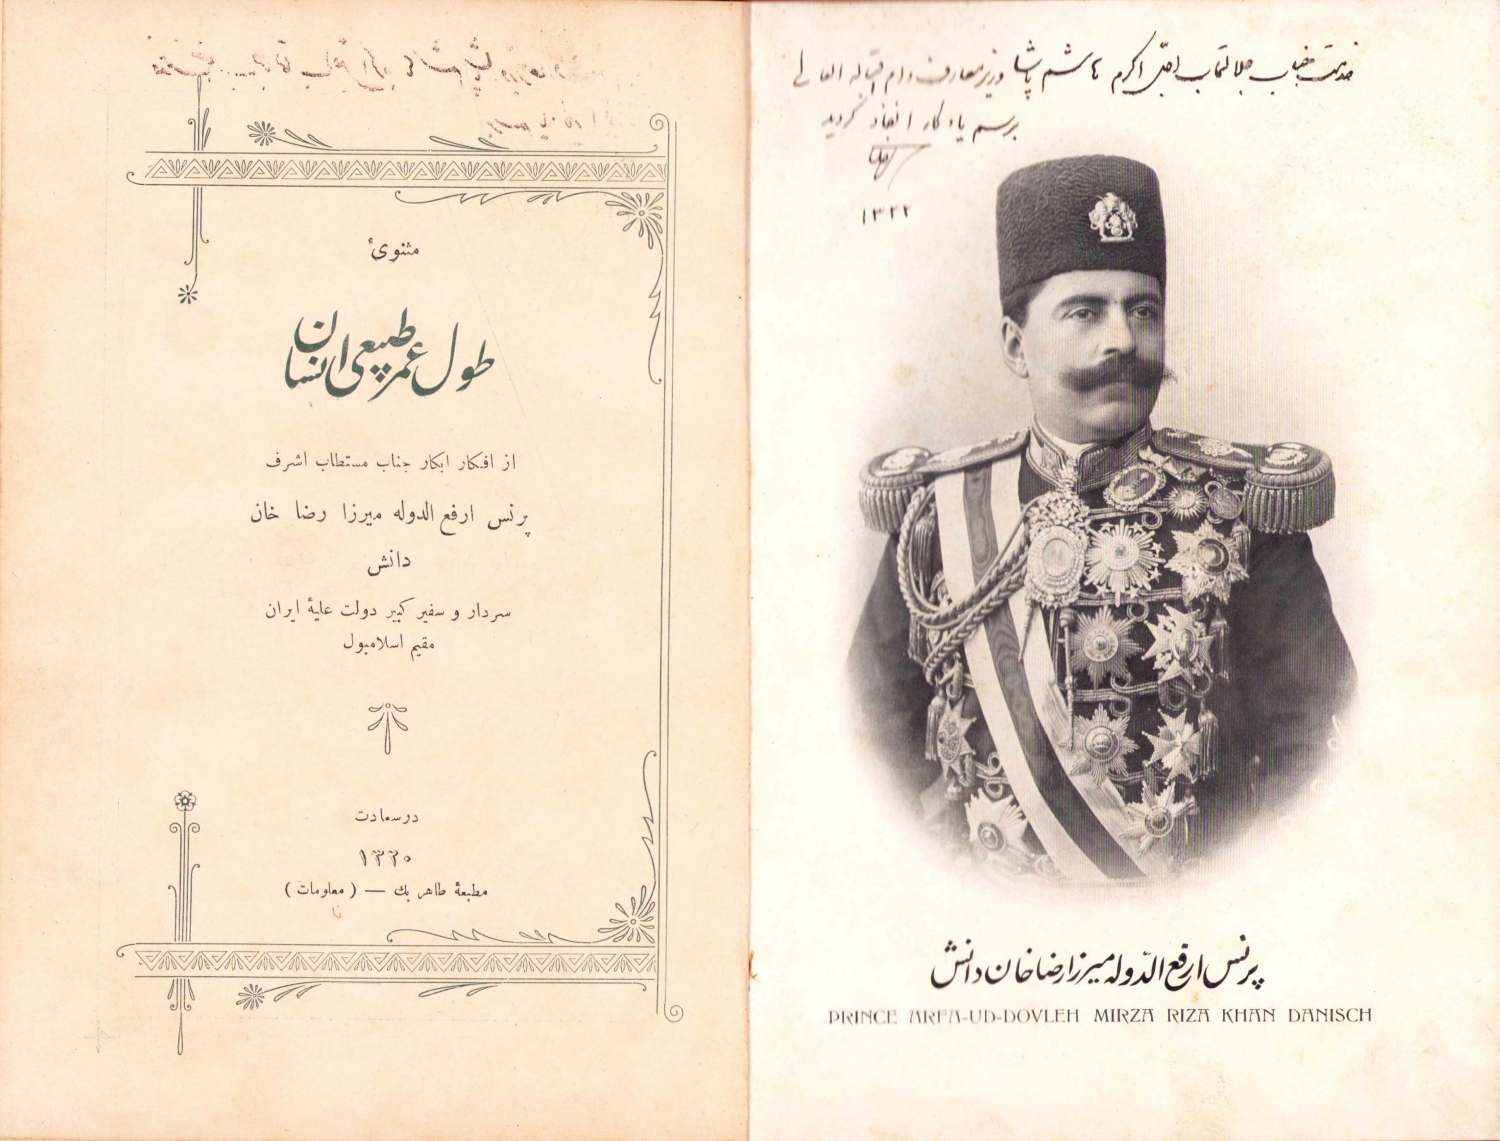 خدمت جناب جلالتمآب اجل اکرم هاشم پاشا وزیر معارف دام اقباله العالی
برسم یادگار انفاذ گردید
۱۳۲۲
پرنس ارفع الدوله میرزا رضا خان دانش
PRINCE ARFA-UD-DOVLEH MIRZA RIZA KHAN DANISCH
مثنویٔ
طول عمر طبیعی انسان
از افکار ابکار جناب مستطاب اشرف
پرنس ارفع الدوله میرزا رضا خان
دانش
سردار و سفیر کبیر دولت علیهٔ ایران
مقیم اسلامبول
درسعادت
۱۳۲۰
مطبعهٔ طاهر بك — ( معلومات )